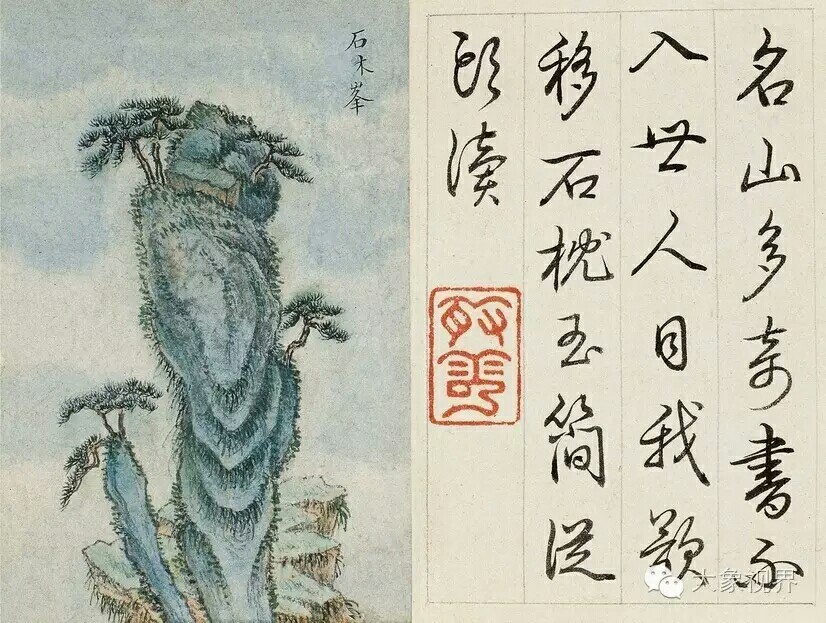 名山多奇書不
入世人目我欲
移石枕玉簡從
頭讀
石木峯
大象视界